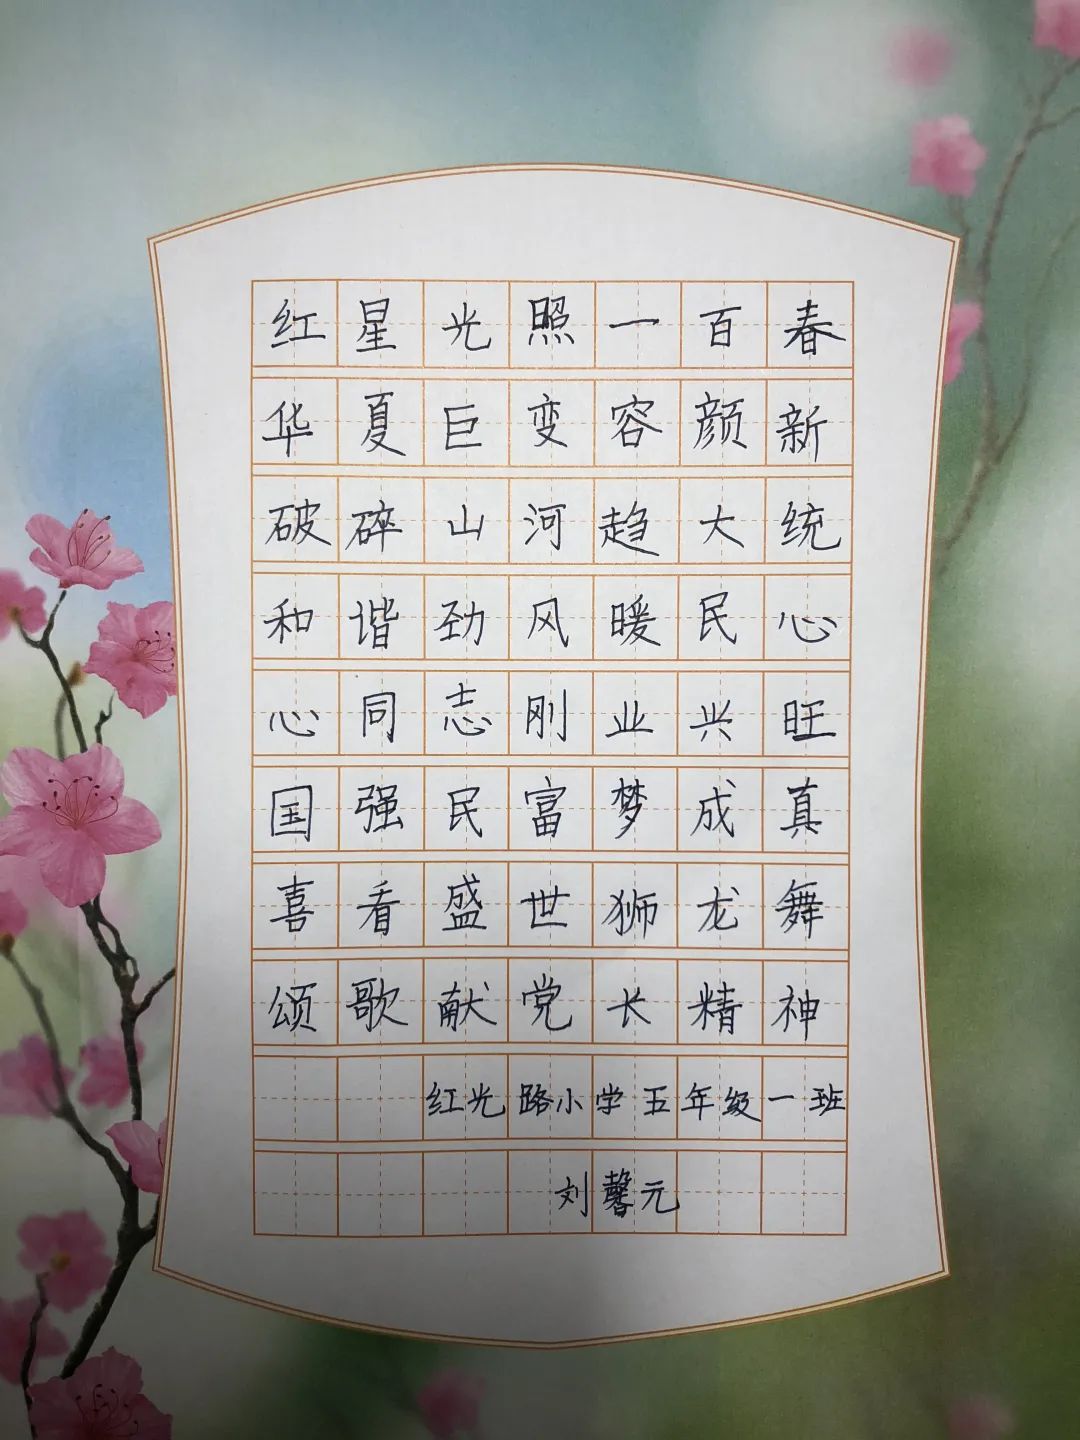 红星光照一百春
华夏巨变容颜新
破碎山河趋大统
和谐劲风暖民心
心同志刚业兴旺
国强民富梦成真
喜看盛世狮龙舞
颂歌献党长精神
红光路小学五年级一班
刘馨元